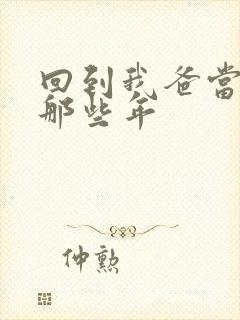 回到我爸当
那些年
仲勲